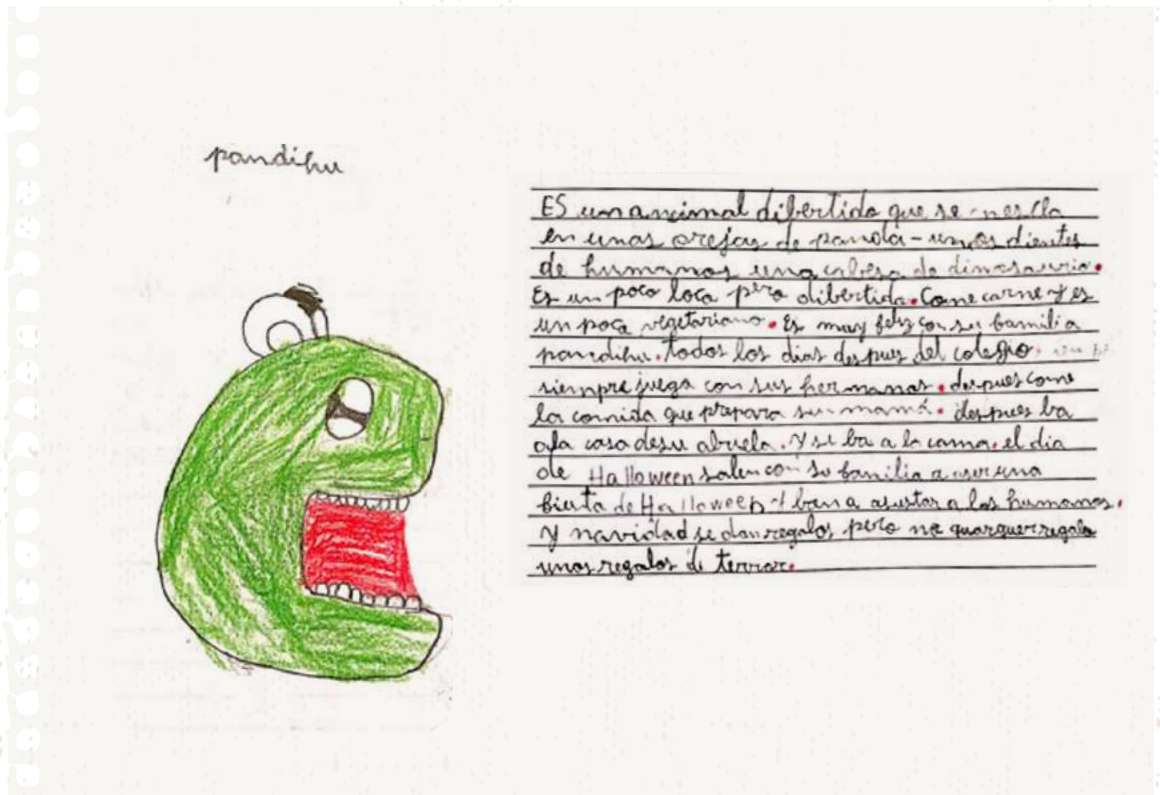 pandihu
ES un animal dibertido que se mescla
en unas orejas de panda - unos dientes
de humanos una cabesa de dinosaurio.
Es un poco loca pero dibertida. Come carne y es
un poca vegetariano. Es muy feliz con su bamilia
pandihu. todos los dias despues del colegio
siempre juega con sus hermanas. despues come
la comida que prepara su mamá. despues ba
ala casa desu abuela. Y se ba a la cama. el dia
de Halloween salen con su familia a aser una
fiesta de Halloween Y ban a asustar a los humanos.
Y navidad se dan regalos pero no quarquer regalo
unos regalos de terror.